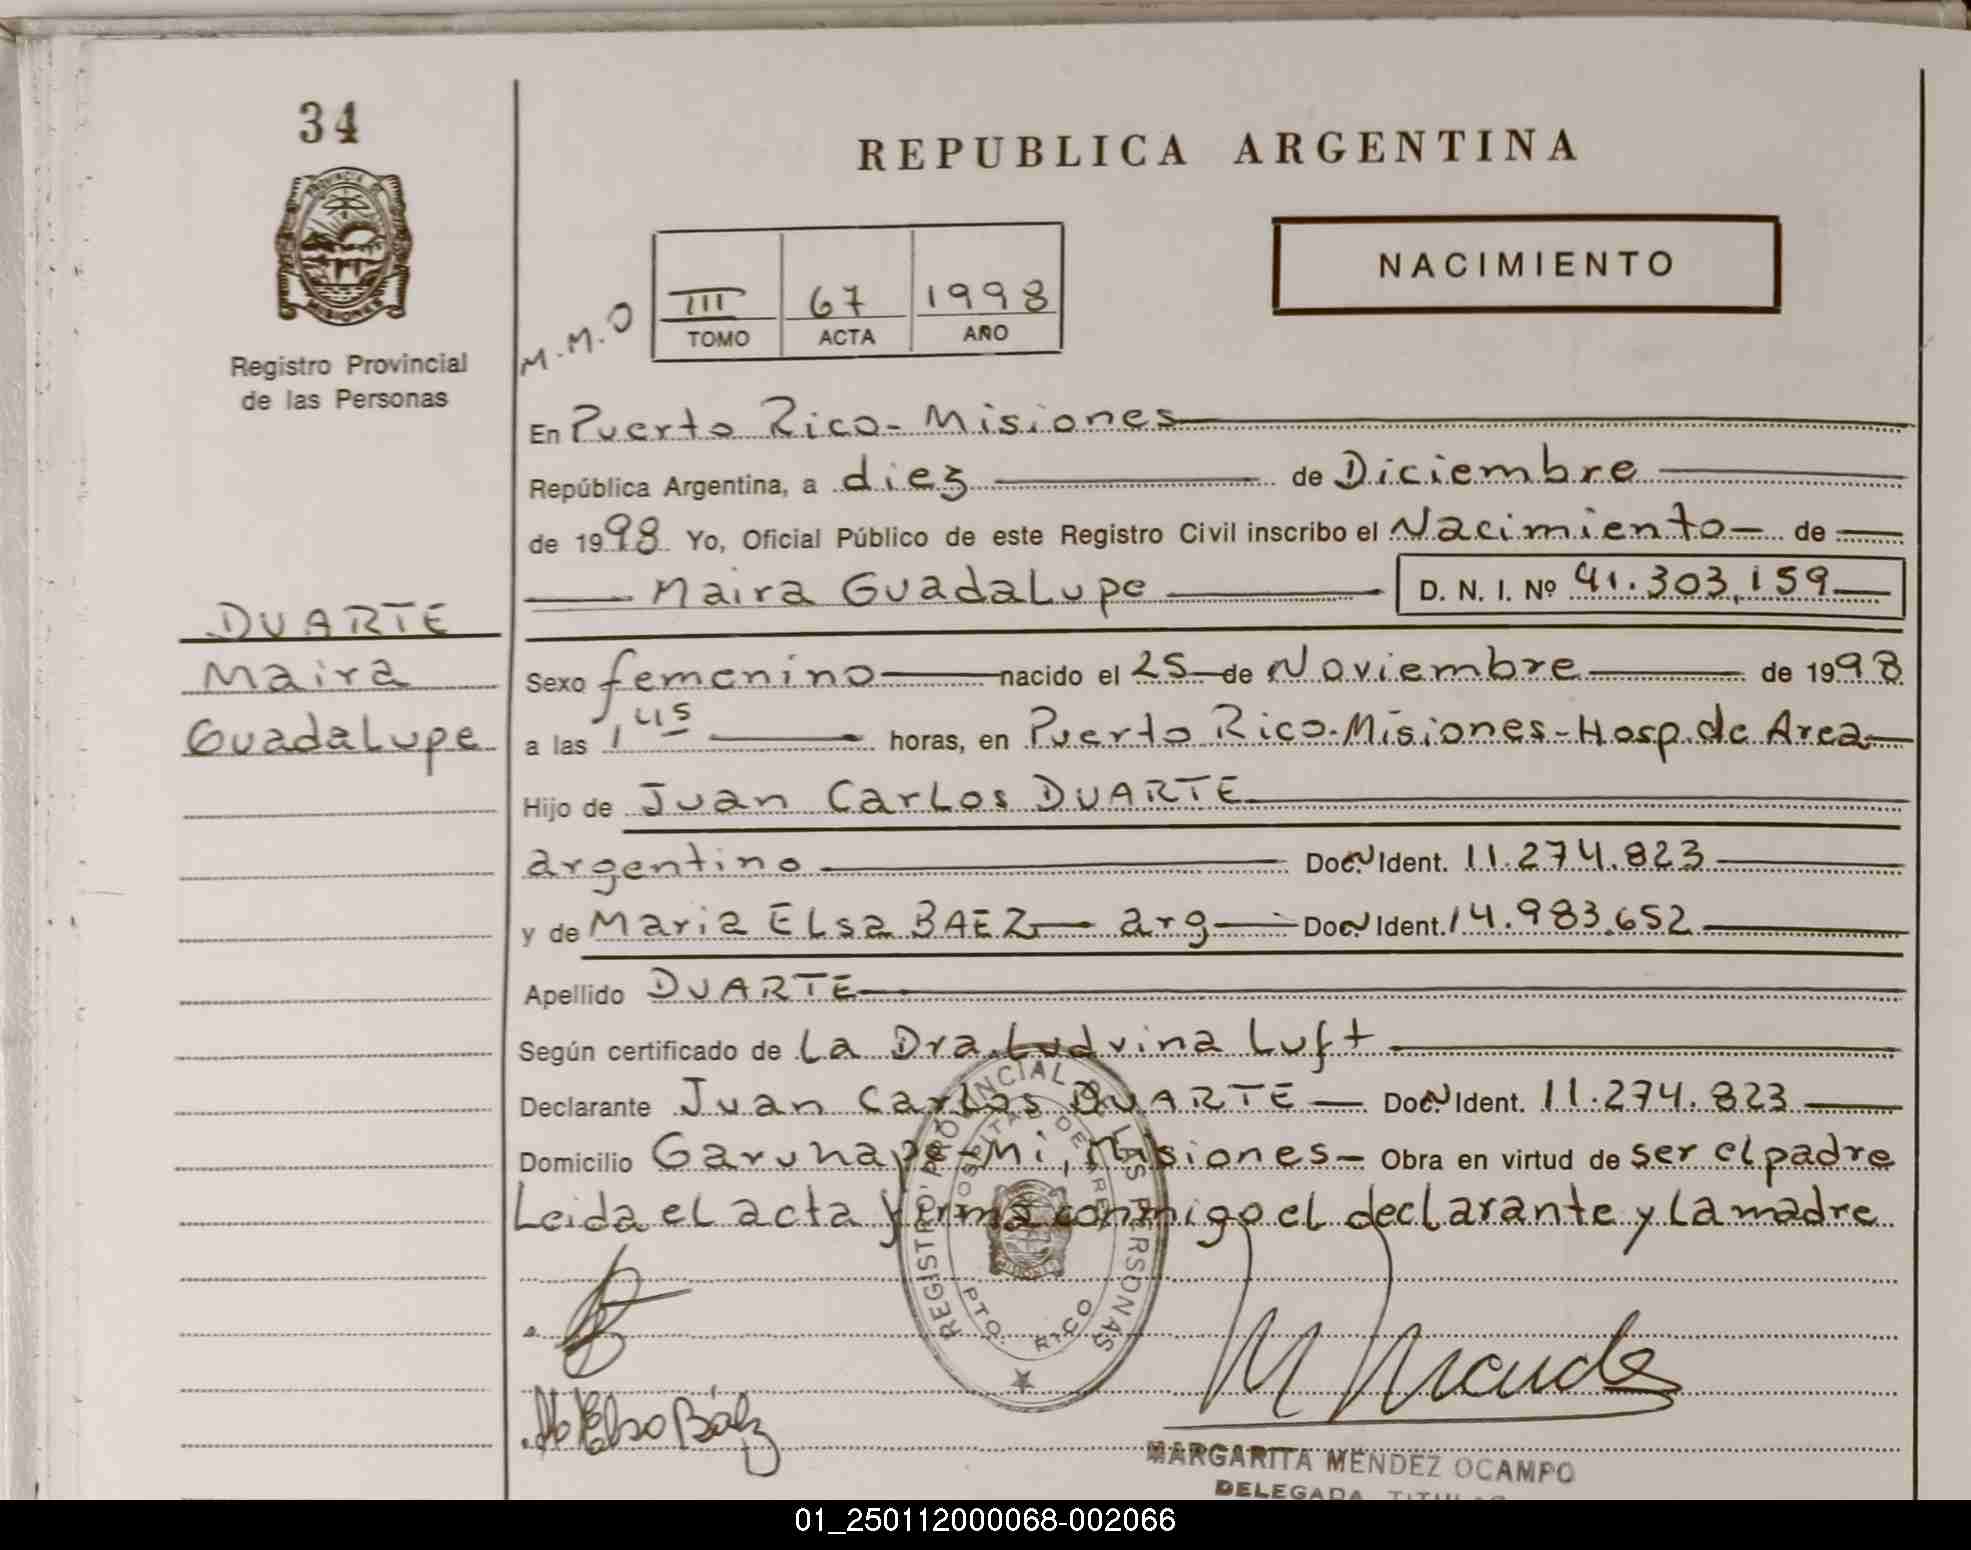 34
REPUBLICA ARGENTINA
PROVINCIA DE
MISIONES
NACIMIENTO
Registro Provincial
de las Personas
M.M.O
III 67 1998
TOMO ACTA AÑO
En Puerto Rico - Misiones
República Argentina, a diez de Diciembre
de 1998 Yo, Oficial Público de este Registro Civil inscribo el Nacimiento de
Maira Guadalupe D. N. I. Nº 41.303.159
DUARTE
Maira
Guadalupe
Sexo femenino nacido el 25 de Noviembre de 1998
a las 1 45 horas, en Puerto Rico-Misiones-Hosp. de Area
Hijo de Juan Carlos DUARTE
argentino Doc. N Ident. 11.274.823
y de Maria Elsa BAEZ arg Doc. N Ident. 14.983.652
Apellido DUARTE
Según certificado de La Dra. Ludvina Luft
Declarante Juan Carlos DUARTE Doc. N Ident. 11.274.823
Domicilio Garuhape-Mi, Misiones - Obra en virtud de ser el padre
Leida el acta y firma conmigo el declarante y la madre
REGISTRO PROVINCIAL DE LAS PERSONAS
HOSPITAL DE AREA
PTO. RICO
Elsa Báez
M Mende
MARGARITA MENDEZ OCAMPO
DELEGADA TITULAR
01_250112000068-002066